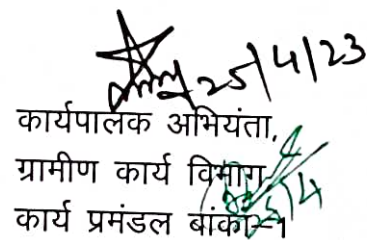 25/4/23
कार्यपालक अभियंता,
ग्रामीण कार्य विभाग
कार्य प्रमंडल बांका-1
25/4